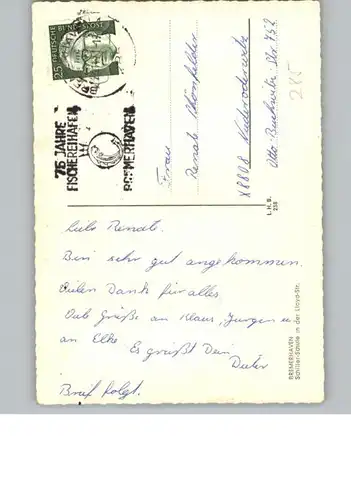 DEUTSCHE BUNDESPOST
25
75 JAHRE
FISCHEREIHAFEN
BREMERHAVEN
Frau
Renate
X8808 Niederoderwitz
Otto-Buchwitz-Str 452
285
L. H. B.
233
BREMERHAVEN
Schiller-Schule in der Lloyd-Str.
Liebe Renate.
Bin sehr gut angekommen.
Vielen Dank für alles.
Grüße an Klaus, Jürgen u.
an Elke
Es grüßt Dein
Dieter
Brief folgt.